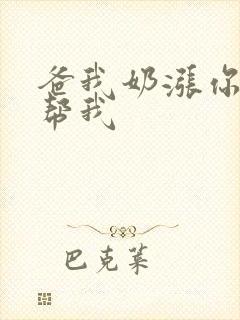 爸我奶涨你
帮我
巴克莱